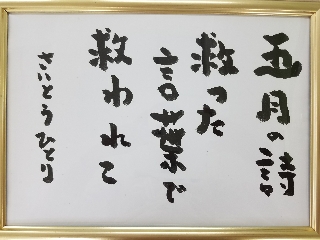 五月の詩
救った
言葉で
救われて
さいとうひとり